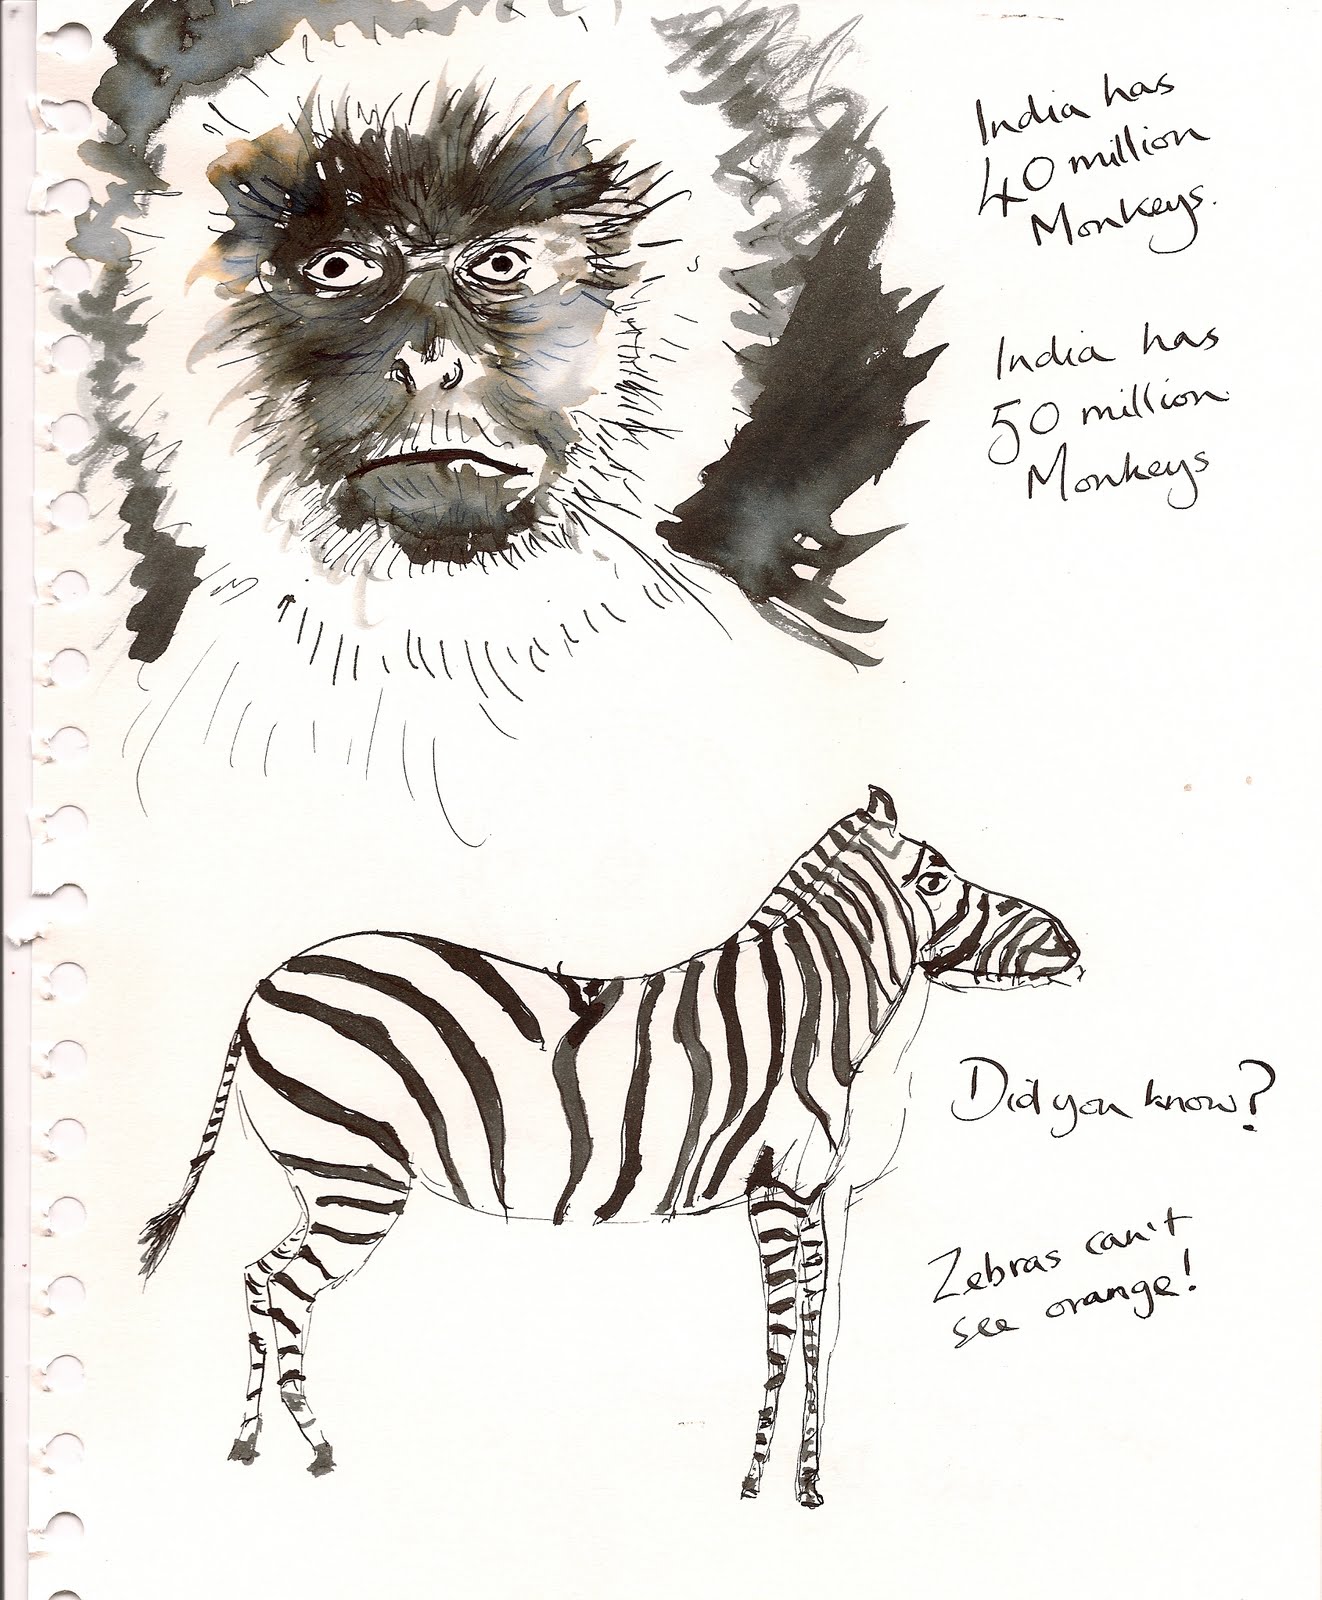 India has
40 million
Monkeys.
India has
50 million
Monkeys
Did you know?
Zebras can't
see orange!